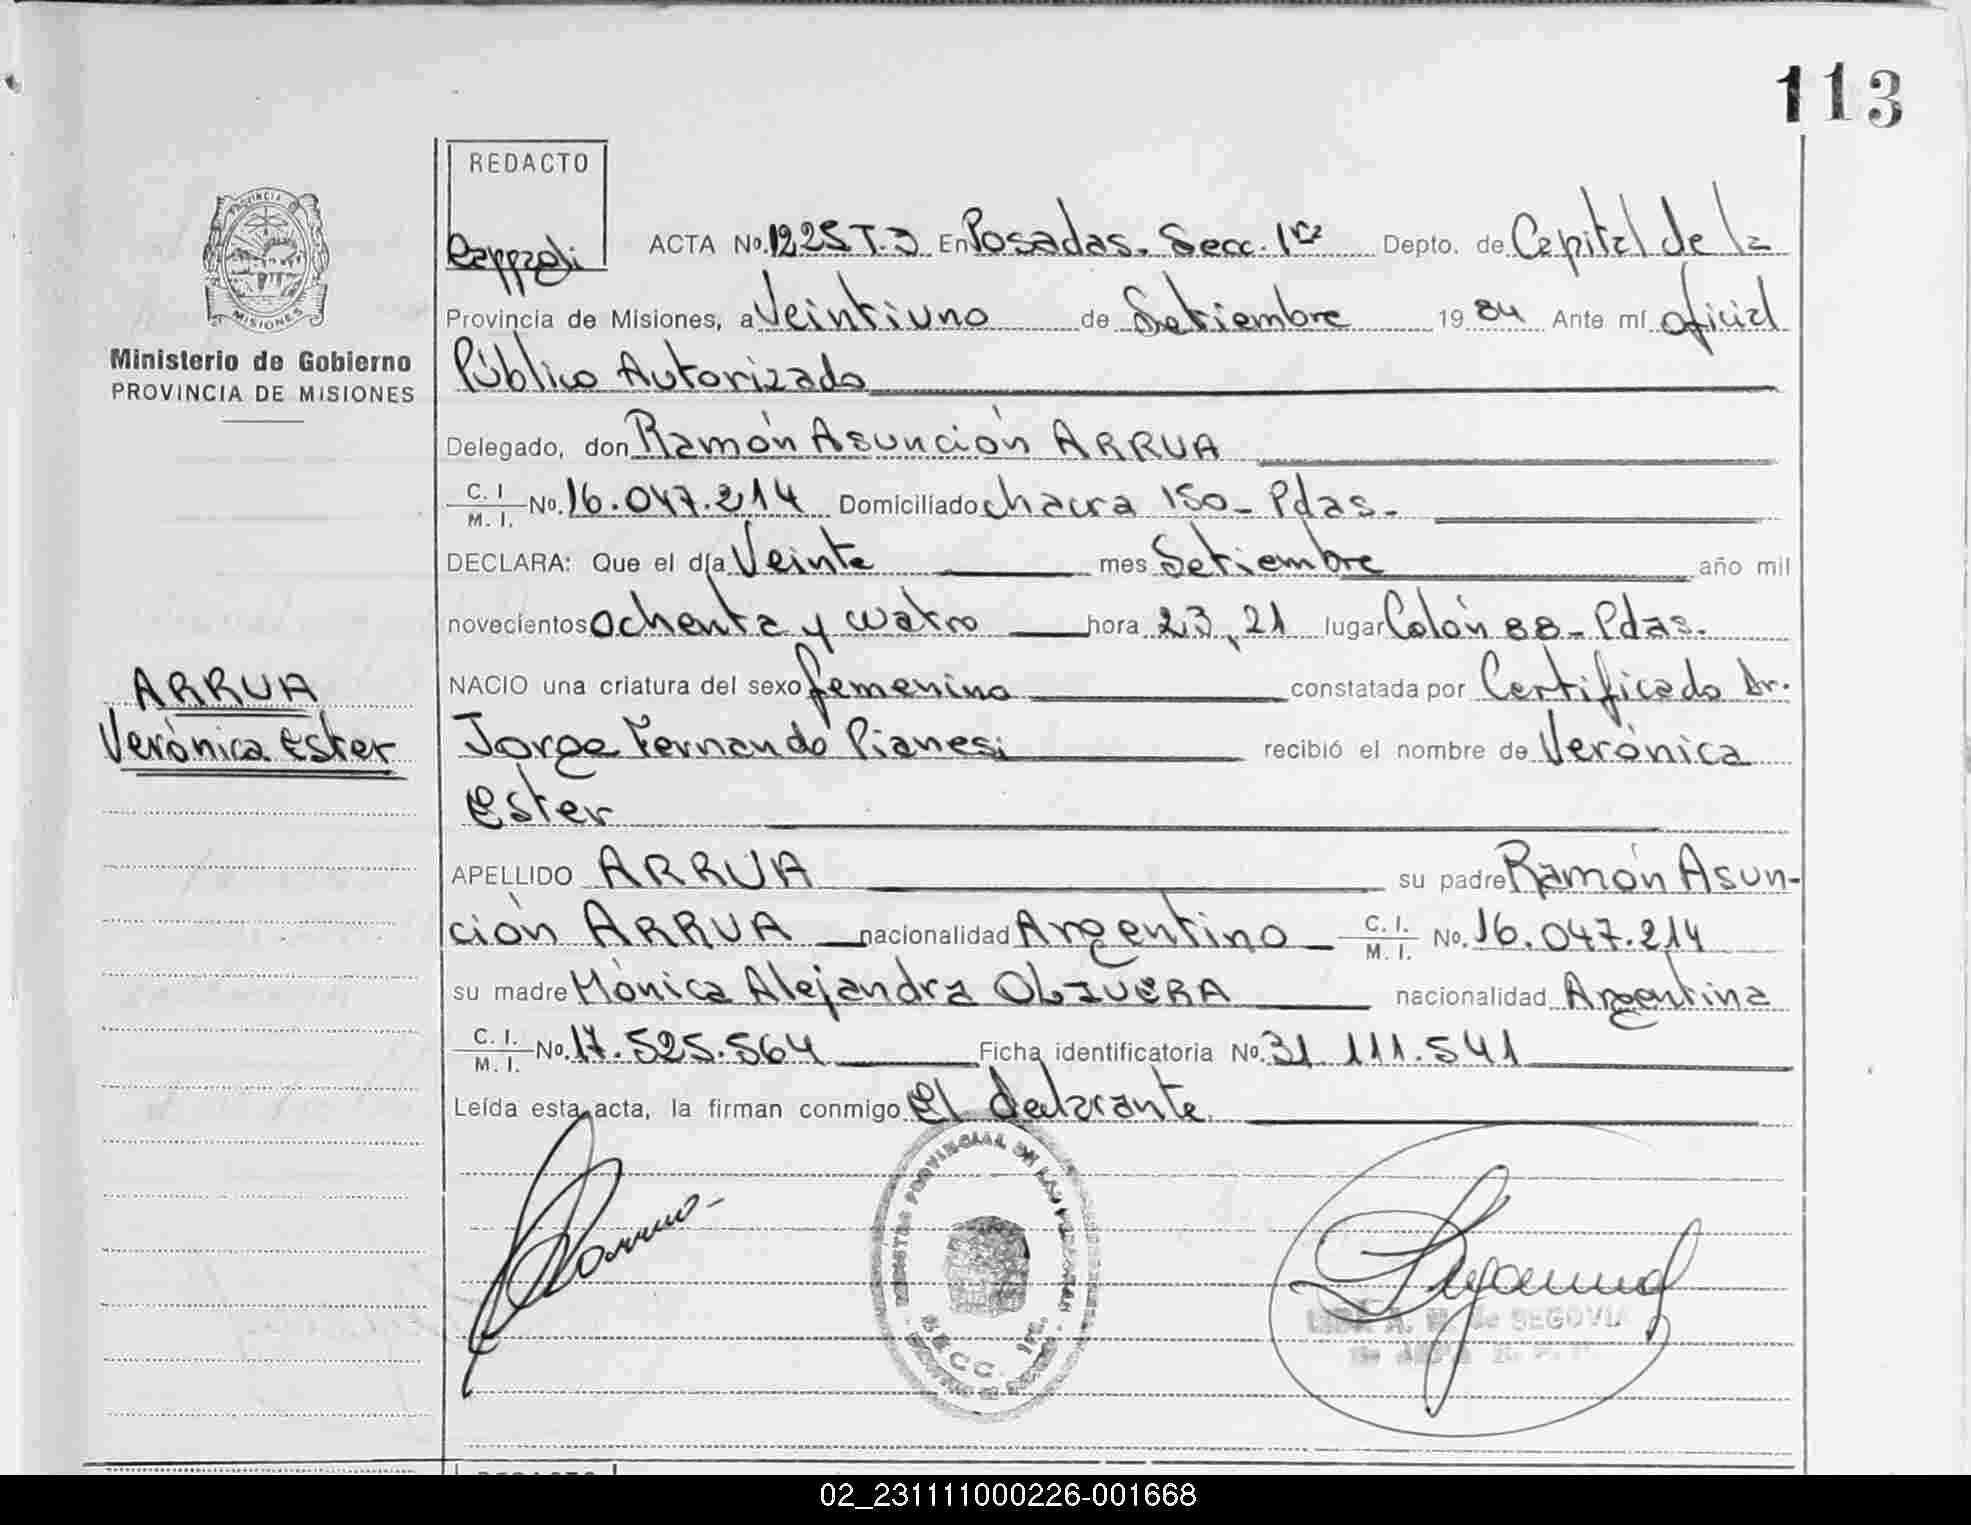 113
REDACTO
ACTA No. 1225 T.3 En Posadas. Secc. 1ra Depto. de Capital de la
PROVINCIA
MISIONES
Provincia de Misiones, a Veintiuno de Setiembre 1984 Ante mí oficial
Ministerio de Gobierno
PROVINCIA DE MISIONES
Público Autorizado
Delegado, don Ramón Asunción ARRUA
C. I. M. I. No. 16.047.214 Domiciliado chacra 150 - Pdas.-
DECLARA: Que el día Veinte mes Setiembre año mil
novecientos ochenta y cuatro hora 23,21 lugar Colón 88 - Pdas.
ARRUA
Verónica Ester
NACIO una criatura del sexo femenino constatada por Certificado Dr.
Jorge Fernando Pianesi recibió el nombre de Verónica
Ester
APELLIDO ARRUA su padre Ramón Asun-
ción ARRUA nacionalidad Argentino C. I. M. I. No. 16.047.214
su madre Mónica Alejandra OLIVERA nacionalidad Argentina
C. I. M. I. No. 17.525.564 Ficha identificatoria No. 31.111.541
Leída esta acta, la firman conmigo El declarante.
SECC. 1ra.
de SEGOVIA
02_231111000226-001668